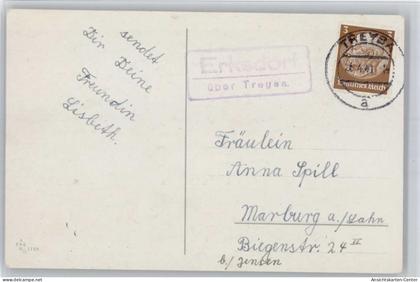 sendet
Dir Deine
Freundin
Lisbeth.
Erksdorf
über Treysa.
TREYSA
a
3
Deutsches Reich
Fräulein
Anna Spill
Marburg a./Lahn
Biegenstr. 24 II
b/ Jenden
Ansichtskarten-Center.de